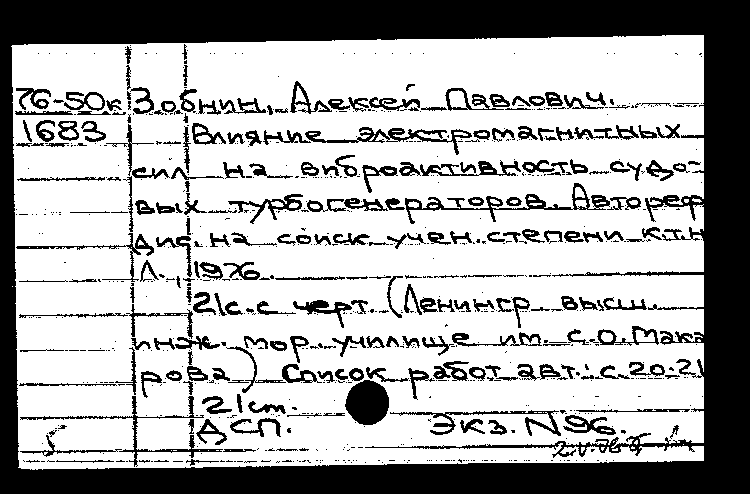 76-50к Зобнин, Алексей Павлович.
1683 Влияние электромагнитных
сил на виброактивность судо-
вых турбогенераторов. Автореф
дис. на соиск. учен. степени к.т.н
Л., 1976.
21с. с черт. (Ленингр. высш.
инж. мор. училище им. С.О. Мака
рова) Список работ авт.: с. 20-21
21 ст.
ДСП. Экз. N96.
5